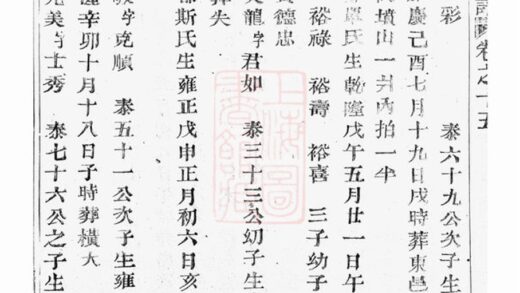 卷之十五
彩 泰六十九公次子生
慶己酉七月十九日戌時葬東邑
墳山一共內拍一半
氏生乾隆戊午五月廿一日午
裕祿 裕壽 裕喜 三子幼子
德忠
龍字君如 泰三十三公幼子生
斯氏生雍正戊申正月初六日亥
葬失
字克順 泰五十一公次子生雍
辛卯十月十八日子時葬橫大
美字士秀 泰七十六公之子生
上海圖書館藏